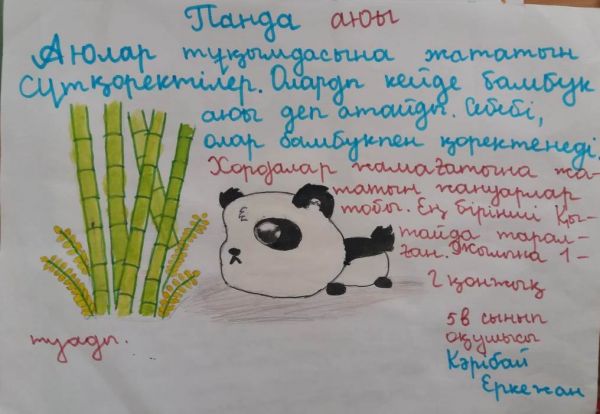 Панда аюы
Аюлар тұқымдасына жататын
сүтқоректілер. Оларды кейде бамбук
аюы деп атайды. Себебі,
олар бамбукпен қоректенеді.
Хордалар жамағатына жа-
татын жануарлар
тобы. Ең бірінші Қы-
тайда тарал-
ған. Жылына 1-
2 қонжық
туады.
5в сынып
оқушысы
Кәрібай
Еркежан